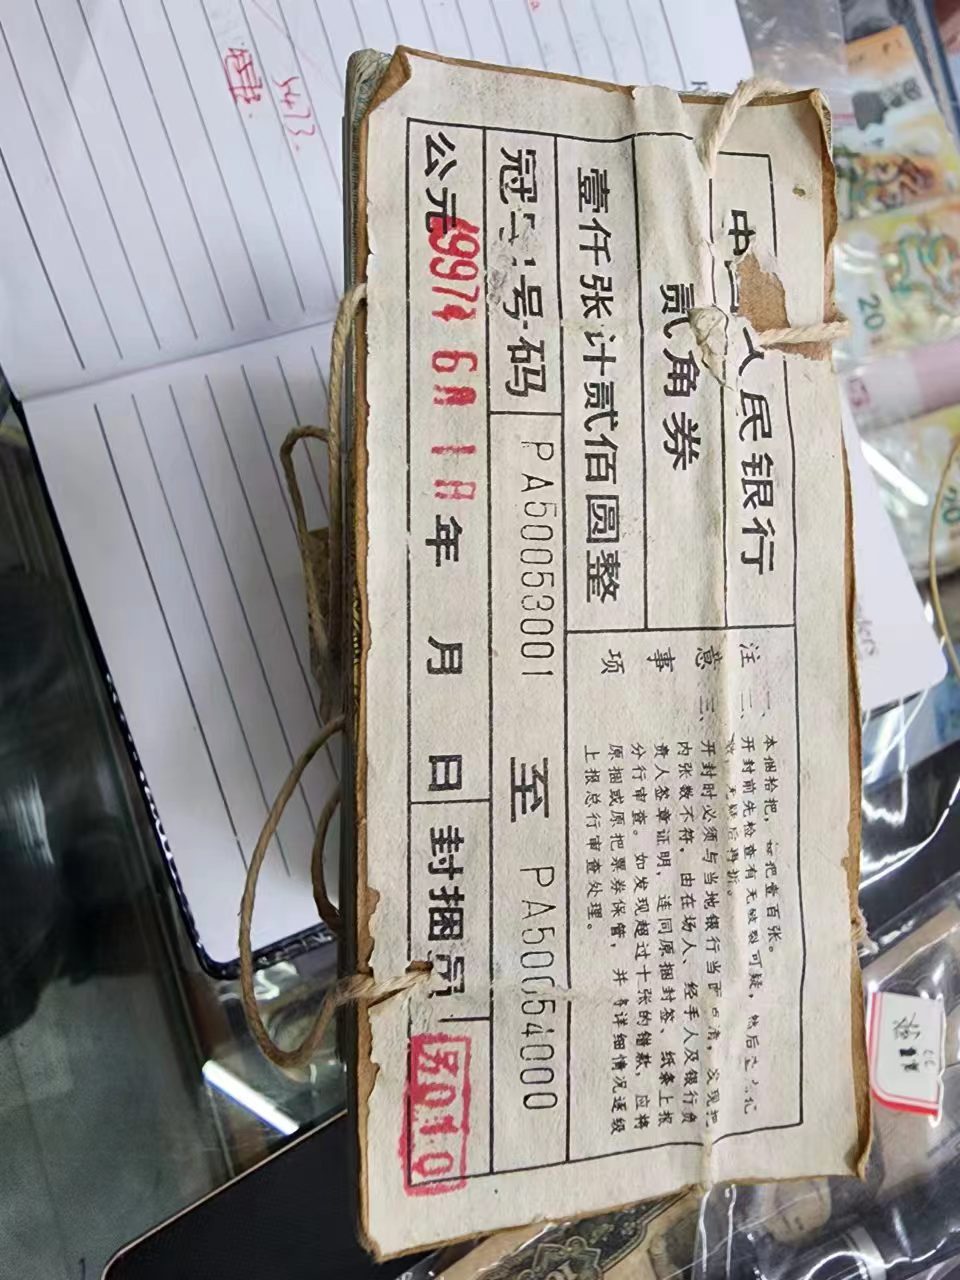 中国人民银行
贰角券
壹仟张计贰佰圆整
冠字号码
PA50053001 至 PA50054000
公元1997年6月1日年 月 日
封捆员
5010
注意事项
一、本捆拾把，每把壹百张。
二、开封前先检查有无破裂可疑，然后
无疑后再拆。
三、开封时必须与当地银行当面点清，发现把
内张数不符，由在场人、经手人及银行负
责人签章证明，连同原捆封签、纸条上报
分行审查。如发现超过十张的错款，应将
原捆或原把票券保管，并将详细情况逐级
上报总行审查处理。
5473
20